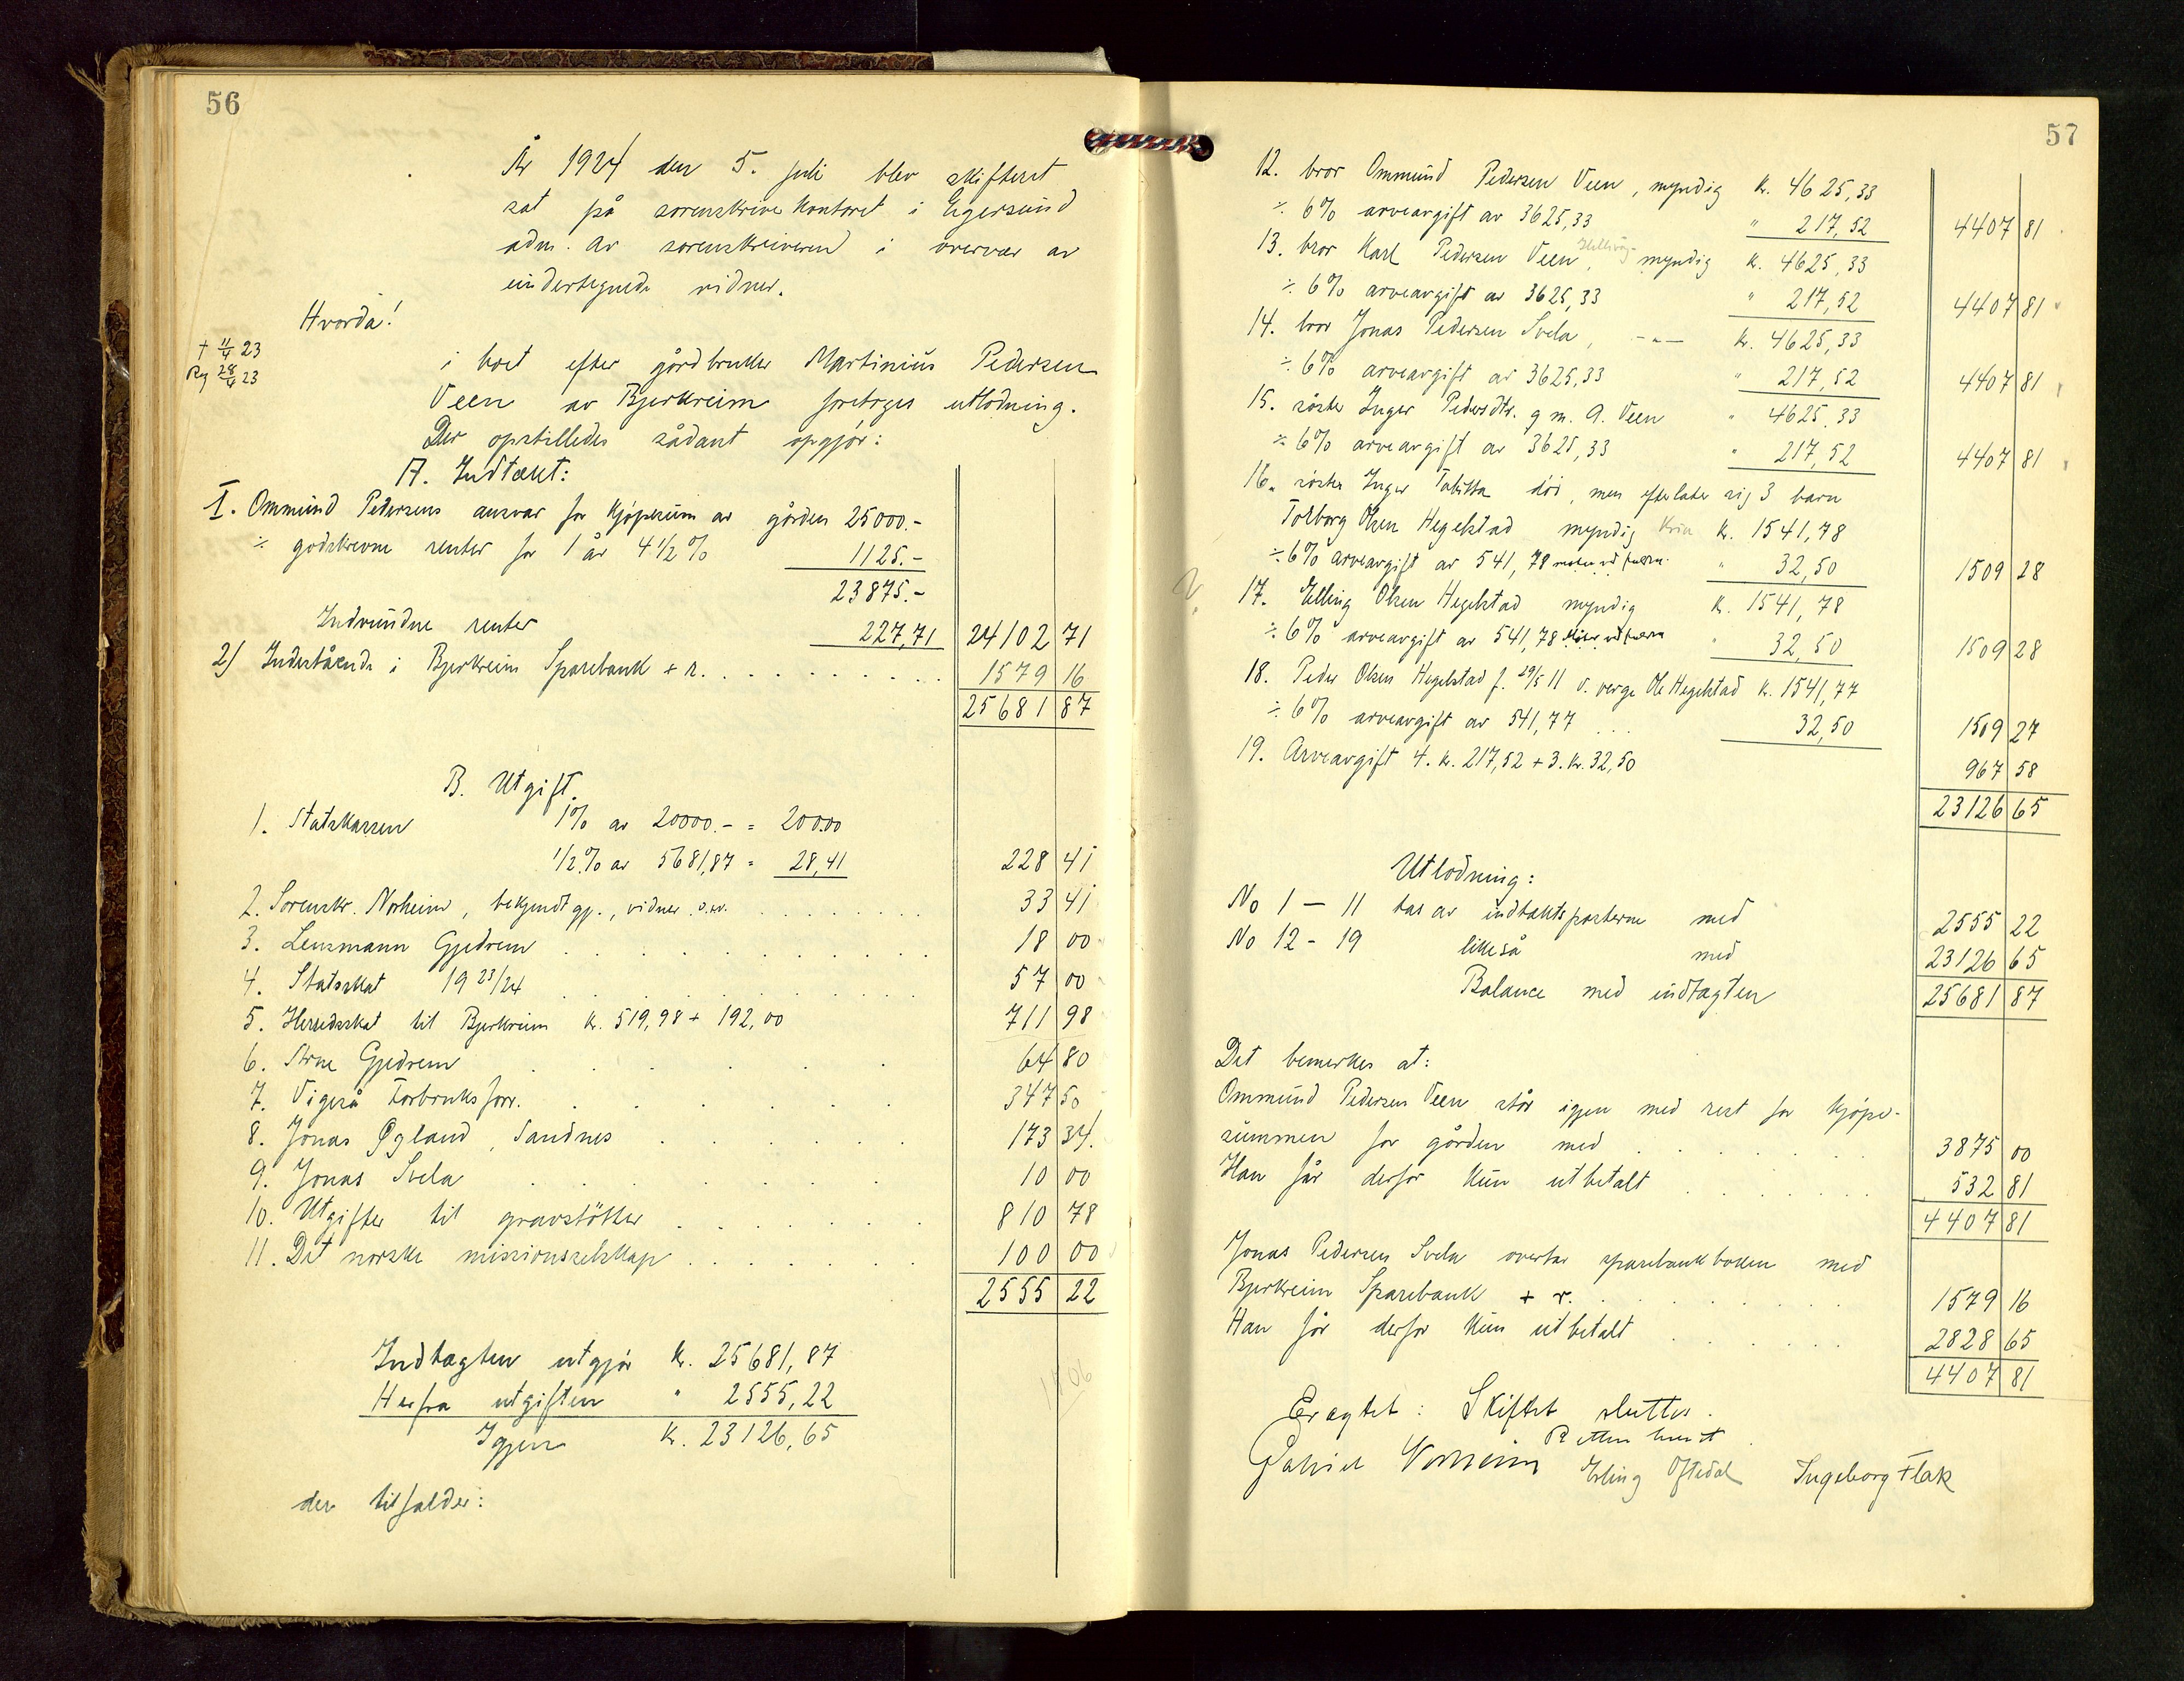 56
År 1924 den 5. juli blev skifteret
sat på sorenskriverkontoret i Egersund
adm. av sorenskriveren i overvær av
undertegnede vidner.
Hvorda!
† 11/4 23
Reg 28/4 23
i boet efter gårdbruker Martinius Pedersen
Veen av Bjerkreim foretoges utlodning.
Der opstilledes sådant opgjør:
A. Indtækt:
I. Ommund Pedersens ansvar for kjøpesum av gården 25000.-
÷ godskrevne renter for 1 år 4 1/2 % 1125.-
23875.-
Indvundne renter 227,71 24102 71
2) Indestående i Bjerkreim Sparebank + r. 1579 16
25681 87
B. Utgift.
1. Statskassen 1% av 20000.- = 200.00
1/2 % av 5681,87 = 28,41 228 41
2. Sorenskr. Norheim, bekjendtgj., vidner o.sv. 33 41
3. Lensmann Gjedrem 18 00
4. Statsskat 19 23/24 57 00
5. Herredsskat til Bjerkreim kr. 519,98 + 192,00 711 98
6. Arne Gjedrem 64 80
7. Vigeså Forbruksforr. 347 50
8. Jonas Øgland, Sandnes 173 34.
9. Jonas Svela 10 00
10. Utgifter til gravstøtter 810 78
11. Det norske missionsselskap 100 00
2555 22
Indtægten utgjør kr. 25681,87
Herfra utgiften " 2555,22
Igjen kr. 23126,65
1406
der tilfalder:
57
12. bror Ommund Pedersen Veen, myndig kr. 4625,33
÷ 6% arveavgift av 3625,33 " 217,52 4407 81
13. bror Karl Pedersen Veen, myndig kr. 4625,33
÷ 6% arveavgift av 3625,33 " 217,52 4407 81
14. bror Jonas Pedersen Svela, -"- kr. 4625,33
÷ 6% arveavgift av 3625,33 " 217,52 4407 81
15. søster Inger Pedersdtr. g m. A. Veen " 4625,33
÷ 6% arveavgift av 3625,33 " 217,52 4407 81
16. søster Inger Tabitta død, men efterlater sig 3 barn
Torborg Olsen Hegelstad myndig kr. 1541,78
÷ 6% arveavgift av 541,78 " 32,50 1509 28
17. Elling Olsen Hegelstad myndig kr. 1541,78
÷ 6% arveavgift av 541,78 " 32,50 1509 28
18. Peder Olsen Hegelstad f. 29/5 11 v. verge Ole Hegelstad kr. 1541,77
÷ 6% arveavgift av 541,77 ... 32,50 1509 27
19. Arveavgift 4. kr. 217,52 + 3. kr. 32,50 967 58
23126 65
Utlodning:
No 1 - 11 tas av indtæktsposterne med 2555 22
No 12 - 19 likeså med 23126 65
Balance med indtægten 25681 87
Det bemerkes at:
Ommund Pedersen Veen står igjen med rest for kjøpe-
summen for gården med 3875 00
Han får derfor kun utbetalt 532 81
4407 81
Jonas Pedersen Svela overtar sparebankboken med
Bjerkreim Sparebank + r. 1579 16
Han får derfor kun utbetalt 2828 65
4407 81
Eragtet: Skiftet sluttes.
Retten hævet
Gabriel Norheim Erling Oftedal Ingeborg Flak